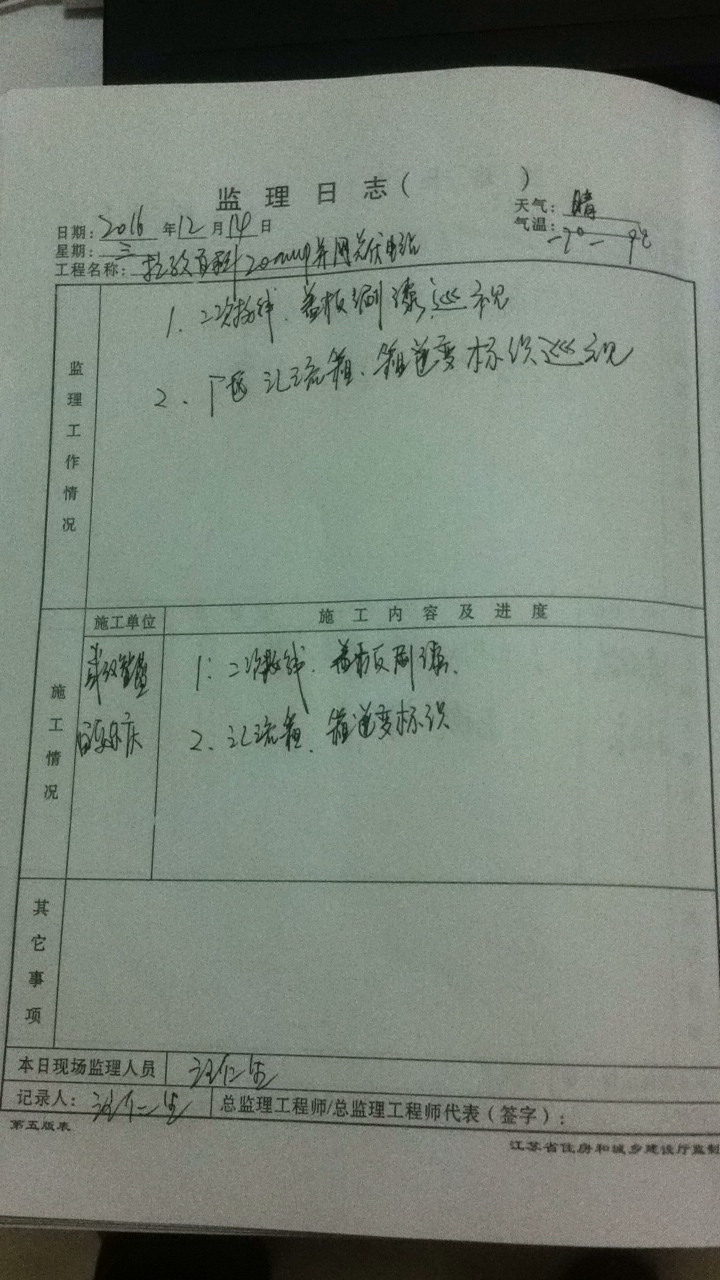 监理日志( )
天气: 晴
日期: 2016 年 12 月 14 日
气温: -7°— 9℃
星期: 三
工程名称: 20mwp并网光伏电站
监理工作情况
1. 二次接线、盖板刷漆巡视
2、厂区汇流箱、箱逆变标识巡视
施工情况
施工单位
施工内容及进度
1: 二次接线、盖板刷漆、
2、汇流箱、箱逆变标识
其它事项
本日现场监理人员 汪仁生
记录人: 汪仁生 总监理工程师/总监理工程师代表(签字):
第五版表
江苏省住房和城乡建设厅监制